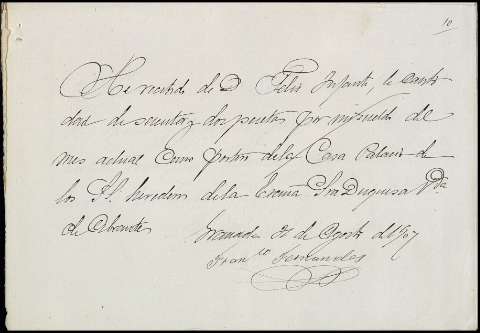 10
He recibido de D. Felix Infante, la canti-
dad de sesenta y dos pesetas por mi sueldo del
mes actual como portero de la Casa Palacio de
los S.S. herederos de la Excma Sra Duquesa Vda
de Abrantes
Granada 31 de Agosto de 1907
Franco Fernandez